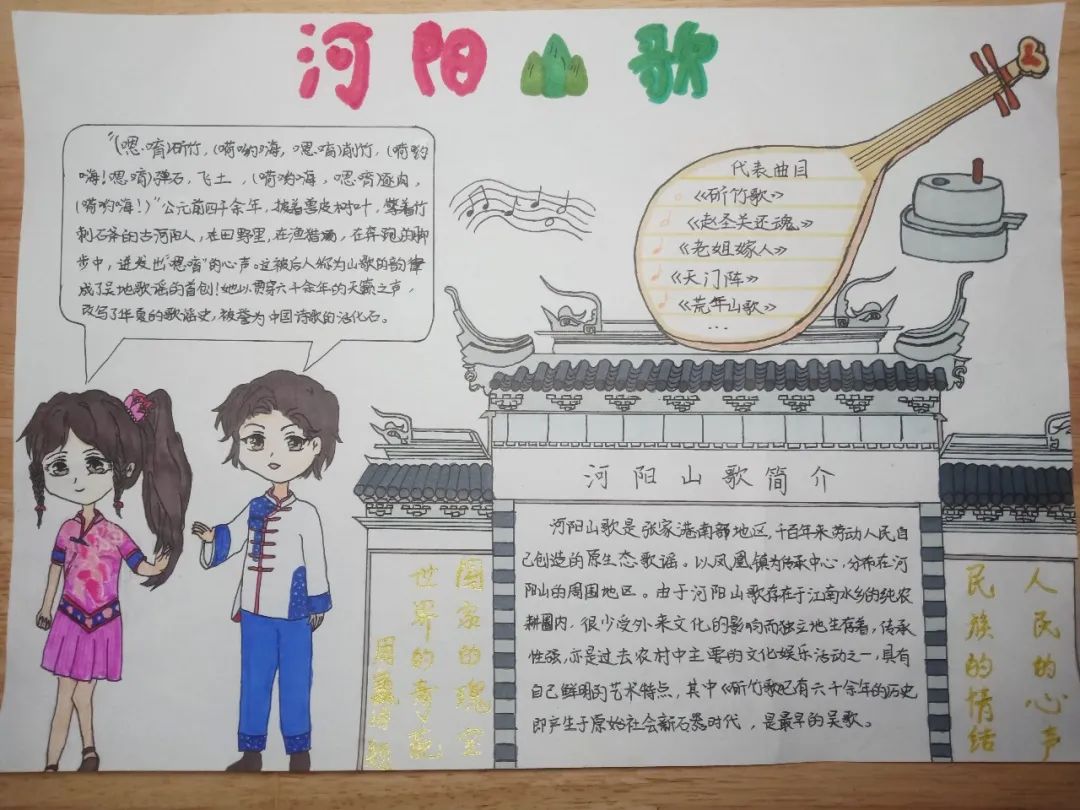 河阳山歌
“(嗯·唷)斫竹，(嗬哟)嗨，嗯·唷)削竹，(嗬哟
嗨！嗯唷)弹石，飞土，(嗬哟)嗨，嗯唷)逐肉，
(嗬哟嗨！)”公元前四千余年，披着兽皮树叶，擎着竹
刺石茅的古河阳人，在田野里，在渔猎场，在奔跑的脚
步中，迸发出“嗯唷”的心声。这被后人称为山歌的韵律
成了吴地歌谣的首创！她以贯穿六千余年的天籁之声，
改写了华夏的歌谣史，被誉为中国诗歌的活化石。
代表曲目
《斫竹歌》
《赵圣关还魂》
《老姐嫁人》
《天门阵》
《荒年山歌》
...
河阳山歌简介
河阳山歌是张家港南部地区，千百年来劳动人民自
己创造的原生态歌谣。以凤凰镇为传承中心，分布在河
阳山的周围地区。由于河阳山歌存在于江南水乡的纯农
耕圈内，很少受外来文化的影响而独立地生存着，传承
性强，亦是过去农村中主要的文化娱乐活动之一，具有
自己鲜明的艺术特点，其中《斫竹歌》已有六千余年的历史
即产生于原始社会新石器时代，是最早的吴歌。
人民的心声
民族的情结
国家的瑰宝
世界的奇葩